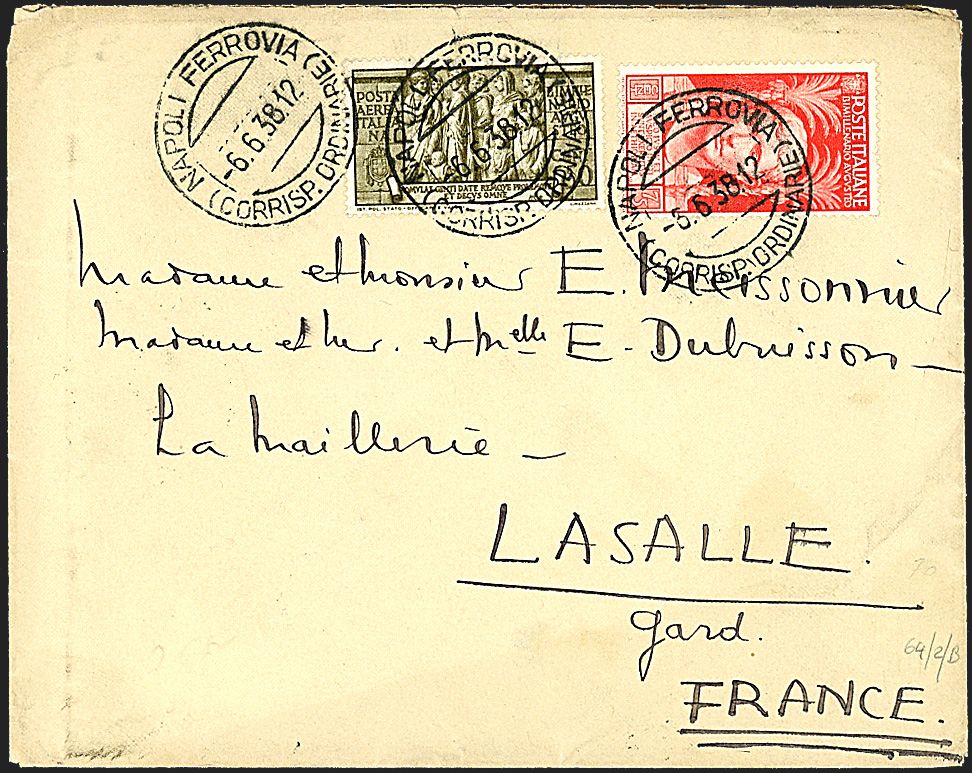 NAPOLI FERROVIA
(CORRISP. ORDINARIE)
-6.6.38.12
NAPOLI FERROVIA
(CORRISP. ORDINARIE)
-6.6.38.12
NAPOLI FERROVIA
(CORRISP. ORDINARIE)
-6.6.38.12
POSTA
AEREA
ITALIA
NA
BIMILLE
NARIO
ROMVLAE GENTI DATE REMQVE PROLEMQVE
ET DECVS OMNE
IST. POL. STATO
POSTE ITALIANE
BIMILLENARIO AVGVSTEO
Madame et Monsieur E. Meissonnier
Madame et Mr. et Melle E. Dubuisson -
La Maillerie -
LASALLE.
Gard.
FRANCE.
64/2/B